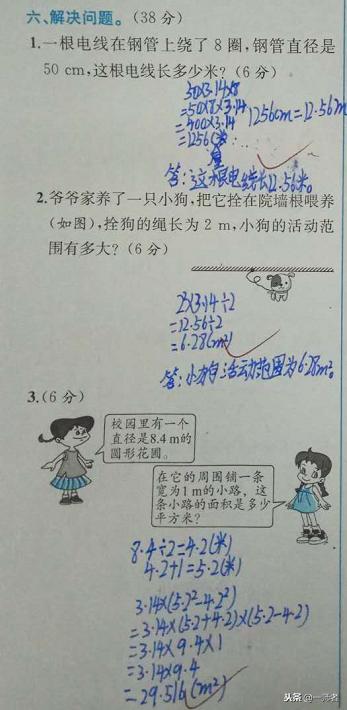 六、解决问题。(38分)
1.一根电线在钢管上绕了8圈,钢管直径是
50 cm,这根电线长多少米?(6分)
50×3.14×8
=50×8×3.14
=400×3.14
=1256(
1256cm=12.56m
答:这根电线长12.56米。
2.爷爷家养了一只小狗,把它拴在院墙根喂养
(如图),拴狗的绳长为2 m,小狗的活动范
围有多大?(6分)
2²×3.14÷2
=12.56÷2
=6.28(m²)
答:小狗活动范围为6.28m²。
3.(6分)
校园里有一个
直径是8.4 m的
圆形花圃。
在它的周围铺一条
宽为1 m的小路,这
条小路的面积是多少
平方米?
8.4÷2=4.2(米)
4.2+1=5.2(米)
3.14×(5.2²-4.2²)
=3.14×(5.2+4.2)×(5.2-4.2)
=3.14×9.4×1
=3.14×9.4
=29.516(m²)
头条@一师者